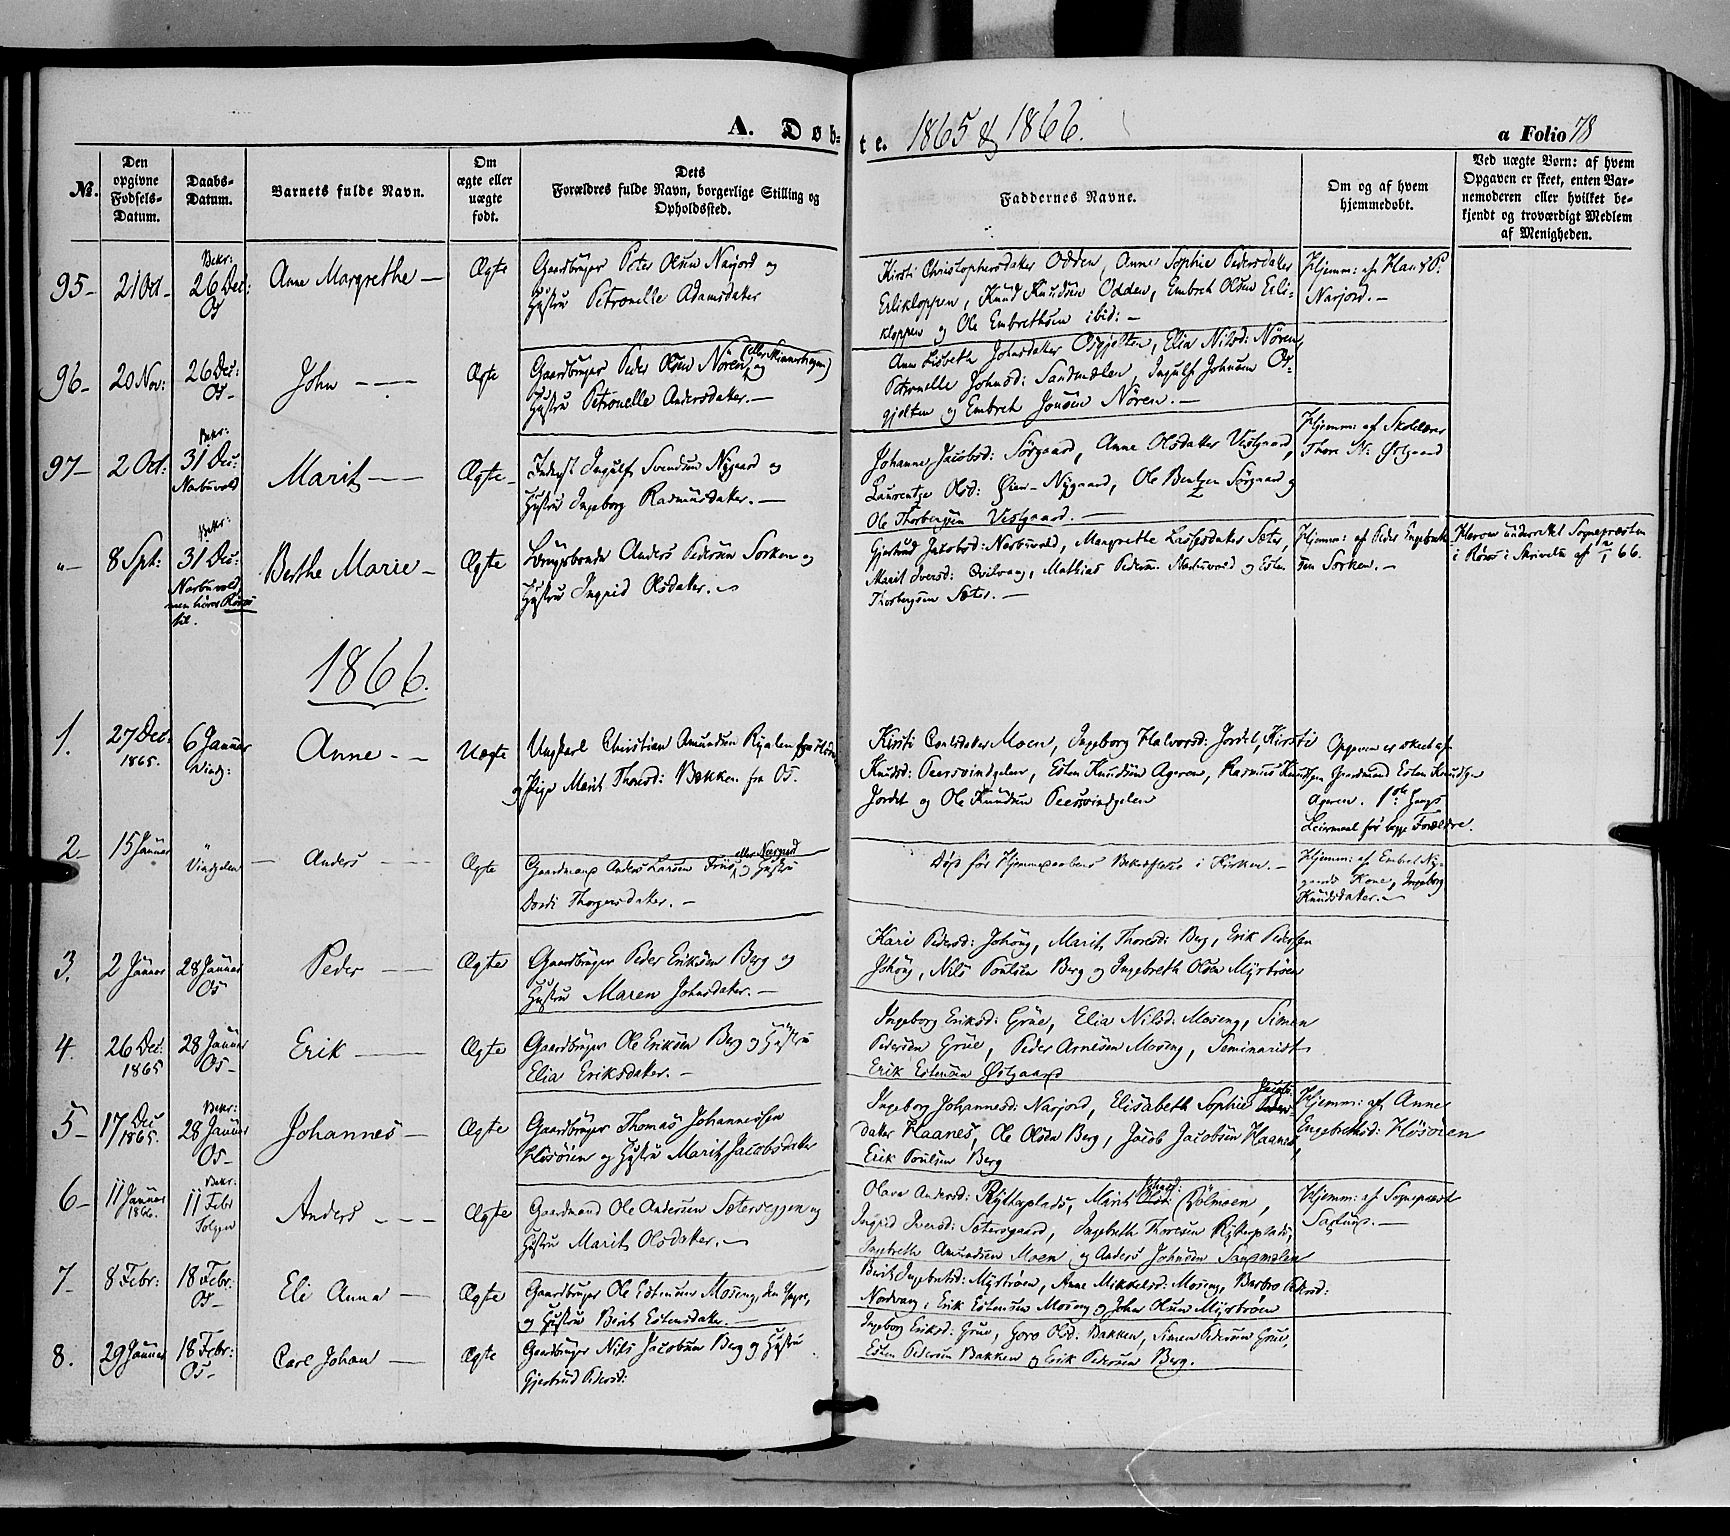 A. Døb-
te. 1865 & 1866.
a Folio 78
No.
Den opgivne Fødsels-Datum.
Daabs-Datum.
Barnets fulde Navn.
Om ægte eller uægte født.
Dets Forældres fulde Navn, borgerlige Stilling og Opholdssted.
Faddernes Navne.
Om og af hvem hjemmedøbt.
Ved uægte Børn: af hvem
Opgaven er skeet, enten Bar-
nemoderen eller hvilket be-
kjendt og troværdigt Medlem
af Menigheden.
95- 21 Oct- Bekr: 26 Dec: Os Anne Margrethe - Ægte
Gaardbruger Peter Olsen Narjord og
Hustru Petronelle Adamsdater
Kirsti Christophersdater Odden, Anne Sophie Pedersdater
Erlikloppen, Knud Knudsen Odden, Embret Olsen Erli-
kloppen og Ole Embrethsen ibid: -
Hjemm: af Hans P.
Narjord. -
96- 20 Nov: 26 Dec: Os- John - - Ægte
Gaardbruger Peder Olsen Nøren og
Hustru Petronelle Andersdater. -
Ane Lisbeth Johnsdater Osgjelten, Elia Nilsd: Nøren,
Petronelle Johnsd: Sandmælen, Ingulf Johnsen Os-
gjelten og Embreth Jonsen Nøren. -
97- 2 Oct: Bekr: 31 Dec: Narbuvold Marit - - Ægte -
Inderst Ingulf Svendsen Nygaard og
Hustru Ingeborg Rasmusdater. -
Johanne Jacobsd: Sørgaard, Anne Olsdater Vestgaard,
Laurentze Olsd: Øien-Nygaard, Ole Bentzen Sørgaard og
Ole Thorbergsen Vestgaard. -
Hjemm: af Skolelærer
Thore N. Østgaard
"- 8 Spt: Bekr: 31 Dec: Narbuvold men hører Røros til. Berthe Marie - Ægte
Anders Pedersen Sorken og
Hustru Ingrid Olsdater. -
Gjertrud Jacobsd: Narbuvold, Margrethe Lassesdater Sæter,
Marit Iversd: Qvilvang, Mathias Pedersen Narbuvold og Esten
Thorbergsen Sæter. -
Hjemm: af Peder Ingebrikt-
sen Sorken. -
Herom underrettet Sognepræsten
i Røros i Skrivelse af 66.
1866.
1. 27 Dec: 1865. 6 Januar Vintg: Anne - - Uægte
Ungkarl Christian Amundsen Ryalen fra
og Pige Marit Thoresd: Bækken fra Os.
Kirsti Carlsdater Moen, Ingeborg Halvorsd: Jordet, Kirsti
Knudsd: Peersvindgelen, Esten Knudsen Ageren, Rasmus Knudsen
Jordet og Ole Knudsen Peersvindgelen
Opgaven er skeet af
Gaardmand Esten Knudsen
Ageren. 1ste Gangs
Leiermaal for begge Forældre.
2- 15 Januar " Vindgelen - Anders - - Ægte
Gaardmand Anders Larsen og Hustru
Dordi Thorgersdater. -
Død før Hjemmedaabens Bekræftelse i Kirken. -
Hjemm: af Embret Ny-
gaards Kone, Ingeborg
Knudsdater. -
3. 2 Januar 28 Januar Os Peder - - Ægte
Gaardbruger Peder Eriksen Berg og
Hustru Maren Johnsdater. -
Kari Pedersd: Johøug, Marit Thoresd: Berg, Erik Pedersen
Johøug, Nils Poulsen Berg og Ingebreth Olsen Myrbrøen
4. 26 Dec: 1865 28 Januar Os- Erik - - Ægte
Gaardbruger Ole Eriksen Berg og Hustru
Elia Eriksdater. -
Ingeborg Eriksd: Grue, Elia Nilsd: Moseng, Simen
Pedersen Grue, Peder Arnesen Moseng, Seminarist
Erik Estensen Østgaard
5- 17 Dec 1865. Bekr: 28 Januar Os- Johannes - Ægte
Gaardbruger Thomas Johannessen
Høsøien og Hustru Marit Jacobsdater
Ingeborg Johannesd: Narjord, Elisabeth Sophie Jacobs-
dater Haanes, Ole Olsen Berg, Jacob Jacobsen Haanes,
Erik Poulsen Berg
Hjemm: af Anne
Engebrethsd: Høsøien
6- 11 Januar 1866. Bekr: 11 Febr Tolgen Anders - - - Ægte
Gaardmand Ole Andersen Sætereggen og
Hustru Marit Olsdater. -
Olava Andersd: Rytterplads, Marit Dølmoen,
Ingrid Iversd: Sætersgaard, Ingebreth Thoresen Rytterplads,
Ingebreth Amundsen Moen og Anders Johnsen Sandmælen
Hjemm: af Sognepræst
7- 8 Febr: 18 Febr: Os- Eli Anna - Ægte
Gaardbruger Ole Estensen Moseng, den Yngre,
og Hustru Berit Estensdater. -
Berit Ingebretsd: Myrbrøen, Anne Mikkelsd: Moseng, Barbro
Nordvang, Erik Estensen Moseng og Johan Olsen Myrbrøen
8. 29 Januar 18 Febr: Os- Carl Johan - Ægte
Gaardbruger Nils Jacobsen Berg og Hustru
Gjertrud Pedersd:
Ingeborg Eriksd: Grue, Goro Olsd: Bakken, Simen Pedersen Grue,
Esten Pedersen Bakken og Erik Pedersen Berg.